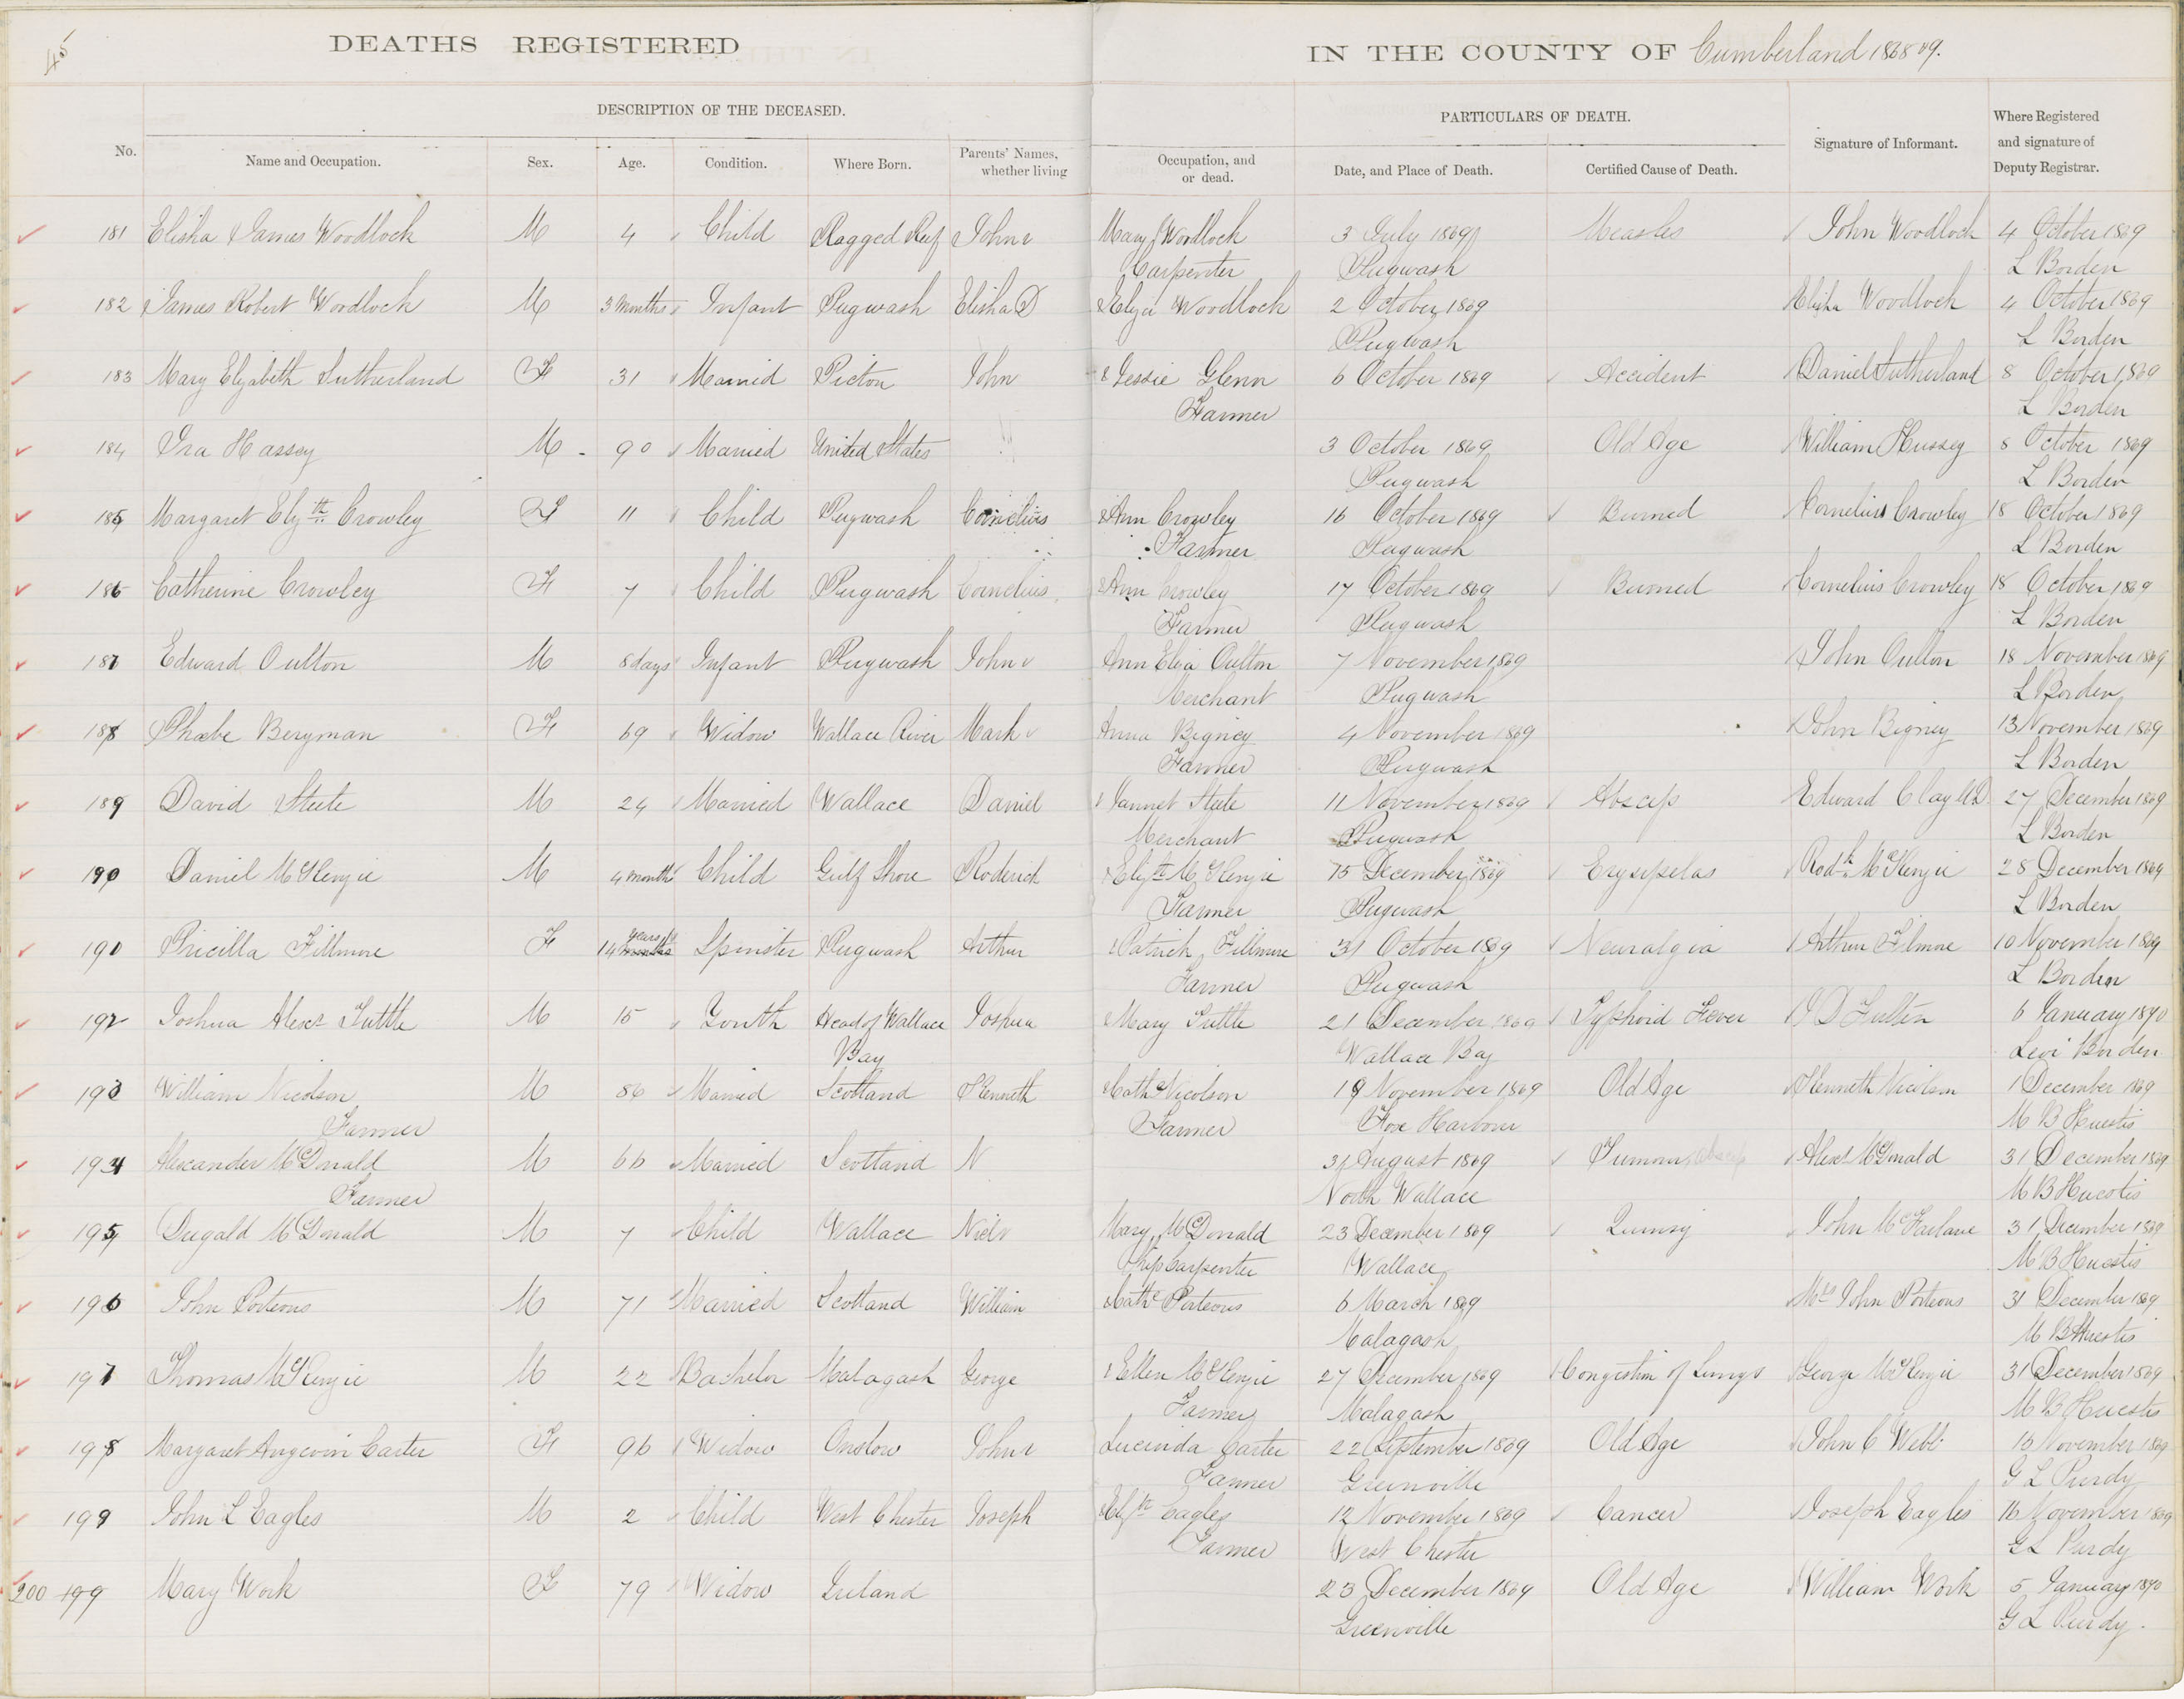 45
DEATHS REGISTERED IN THE COUNTY OF Cumberland 1868 69.
DESCRIPTION OF THE DECEASED. PARTICULARS OF DEATH.
No. Name and Occupation. Sex. Age. Condition. Where Born. Parents' Names, whether living Occupation, and or dead. Date, and Place of Death. Certified Cause of Death. Signature of Informant. Where Registered and signature of Deputy Registrar.
181 Elisha James Woodlock M 4 Child Ragged Reef John & Mary Woodlock 3 July 1869 Measles John Woodlock 4 October 1869
Carpenter Pugwash L Borden
182 James Robert Woodlock M 3 months Infant Pugwash Elisha D & Eliza Woodlock 2 October 1869 Elisha Woodlock 4 October 1869
Pugwash L Borden
183 Mary Elizabeth Sutherland F 31 Married Pictou John & Jessie Glenn 6 October 1869 Accident Daniel Sutherland 8 October 1869
Farmer L Borden
184 Ira Hassey M 90 Married United States 3 October 1869 Old Age William Hussey 8 October 1869
Pugwash L Borden
185 Margaret Elizth Crowley F 11 Child Pugwash Cornelius & Ann Crowley 16 October 1869 Burned Cornelius Crowley 18 October 1869
Farmer Pugwash L Borden
186 Catherine Crowley F 7 Child Pugwash Cornelius & Ann Crowley 17 October 1869 Burned Cornelius Crowley 18 October 1869
Farmer Pugwash L Borden
187 Edward Oulton M 8 days Infant Pugwash John & Ann Eliza Oulton 7 November 1869 John Oulton 18 November 1869
Merchant Pugwash L Borden
188 Phœbe Beryman F 69 Widow Wallace River Mark & Anna Bigney 4 November 1869 John Bigney 13 November 1869
Farmer Pugwash L Borden
189 David Steele M 24 Married Wallace Daniel & Jannet State 11 November 1869 Abscess Edward Clay MD 27 December 1869
Merchant Pugwash L Borden
190 Daniel McKenzie M 4 month Child Gulf Shore Roderick & Elizth McKenzie 15 December 1869 Erysipelas Rodk McKenzie 28 December 1869
Farmer Pugwash L Borden
191 Pricilla Fillmore F 14 years months Spinster Pugwash Arthur & Patrick Fillmore 31 October 1869 Neuralgia Arthur Filmore 10 November 1869
Farmer Pugwash L Borden
192 Joshua Alexr Tuttle M 15 Youth Head of Wallace Joshua & Mary Tuttle 21 December 1869 Typhoid Fever D Fulton 6 January 1870
Bay Wallace Bay Levi Borden
193 William Nicolson M 86 Married Scotland Kenneth & Cathe Nicolson 19 November 1869 Old Age Kenneth Nicolson 1 December 1869
Farmer Farmer Fox Harbour M B Huestis
194 Alexander McDonald M 66 Married Scotland N 31 August 1869 Tumour Abscess Alexr McDonald 31 December 1869
Farmer North Wallace M B Huestis
195 Dugald McDonald M 7 Child Wallace Neil & Mary McDonald 23 December 1869 Quinsy John McFarlane 31 December 1869
Ship Carpenter Wallace M B Huestis
196 John Porteous M 71 Married Scotland William & Cathe Porteous 6 March 1869 Mrs John Porteous 31 December 1869
Malagash M B Huestis
197 Thomas McKenzie M 22 Bachelor Malagash George & Ellen McKenzie 27 December 1869 Congestion of Lungs George McKenzie 31 December 1869
Farmer Malagash M B Huestis
198 Margaret Angevin Carter F 96 Widow Onslow John & Lucinda Carter 22 September 1869 Old Age John C Webb 15 November 1869
Farmer Greenville G L Purdy
199 John L Eagles M 2 Child West Chester Joseph & Elizth Eagles 12 November 1869 Cancer Joseph Eagles 16 November 1869
Farmer West Chester G L Purdy
200 199 Mary Work F 79 Widow Ireland 23 December 1869 Old Age William Work 5 January 1870
Greenville G L Purdy.